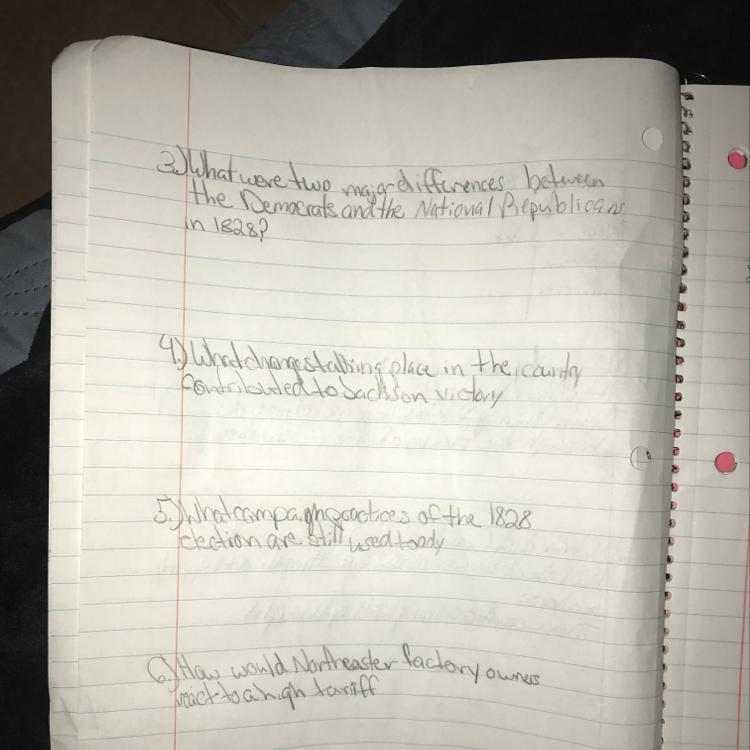 3.) What were two major differences between
the Democrats and the National Republicans
in 1828?
4.) What changes taking place in the country
contributed to Jackson victory
5.) What campaign practices of the 1828
election are still used toady
6.) How would Northeaster factory owners
react to a high tariff